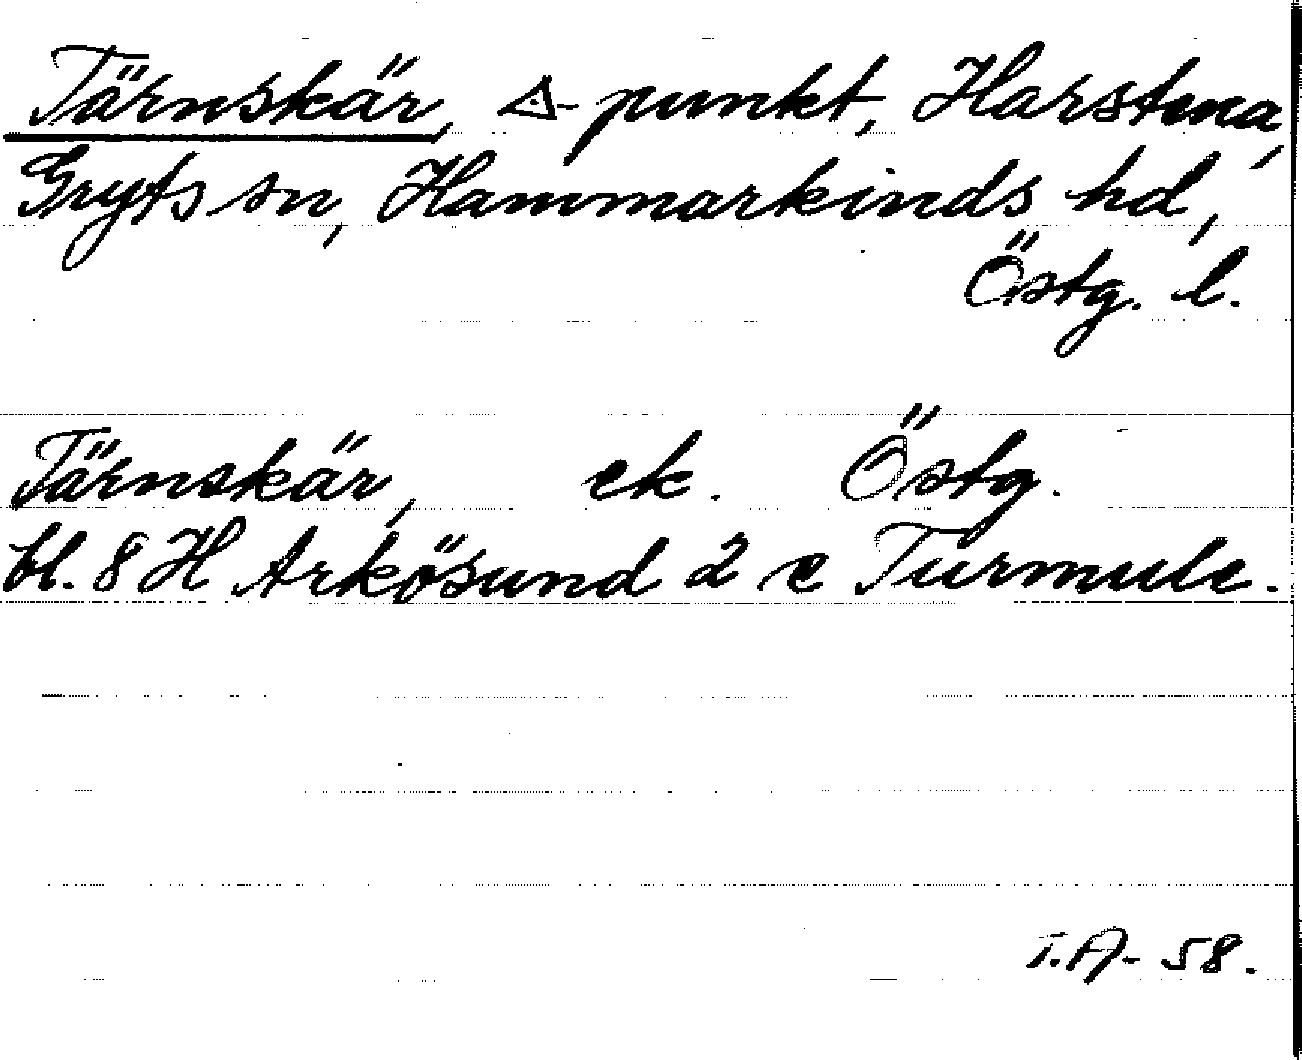 Tärnskär, △-punkt, Harstena,
Gryts sn, Hammarkinds hd,
Östg. l.
Tärnskär, ek. Östg.
bl. 8 H Arkösund 2 c Turmulc.
T.A-58.